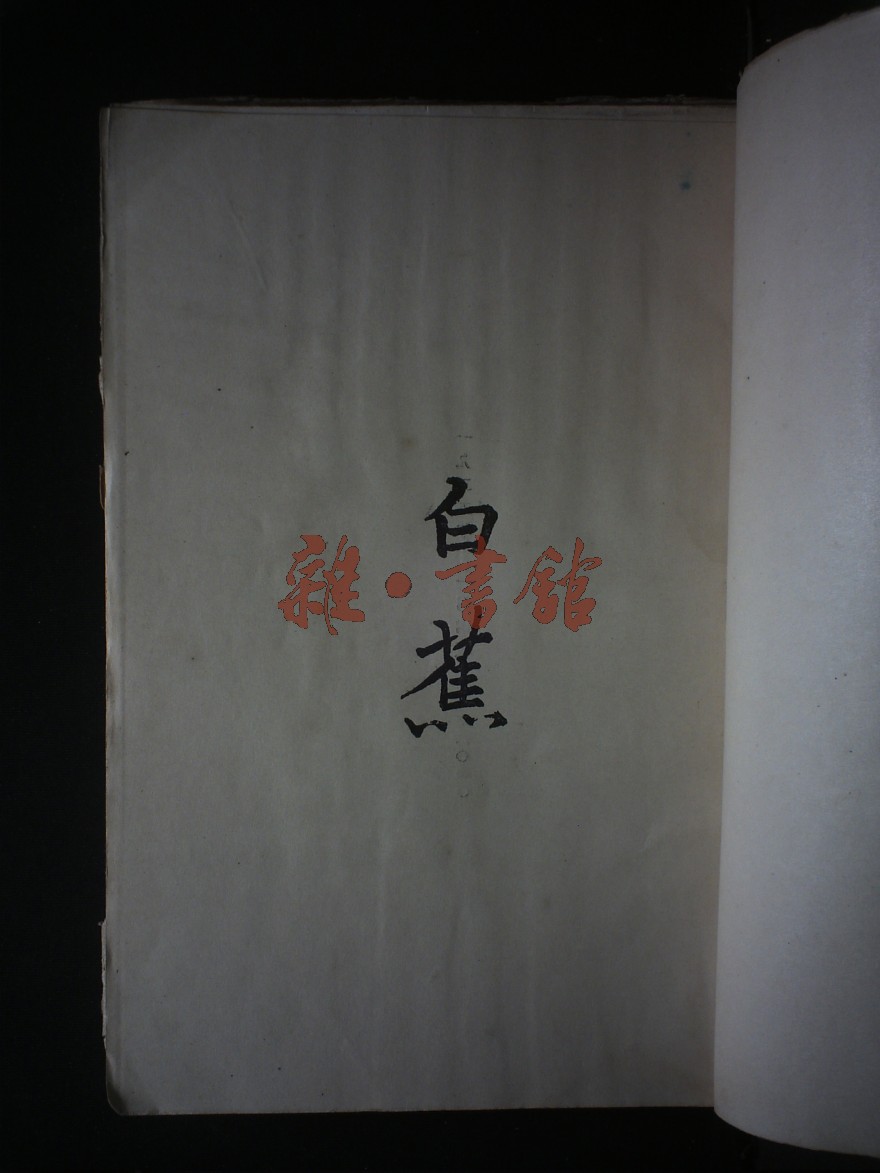 白蕉
雜·書館